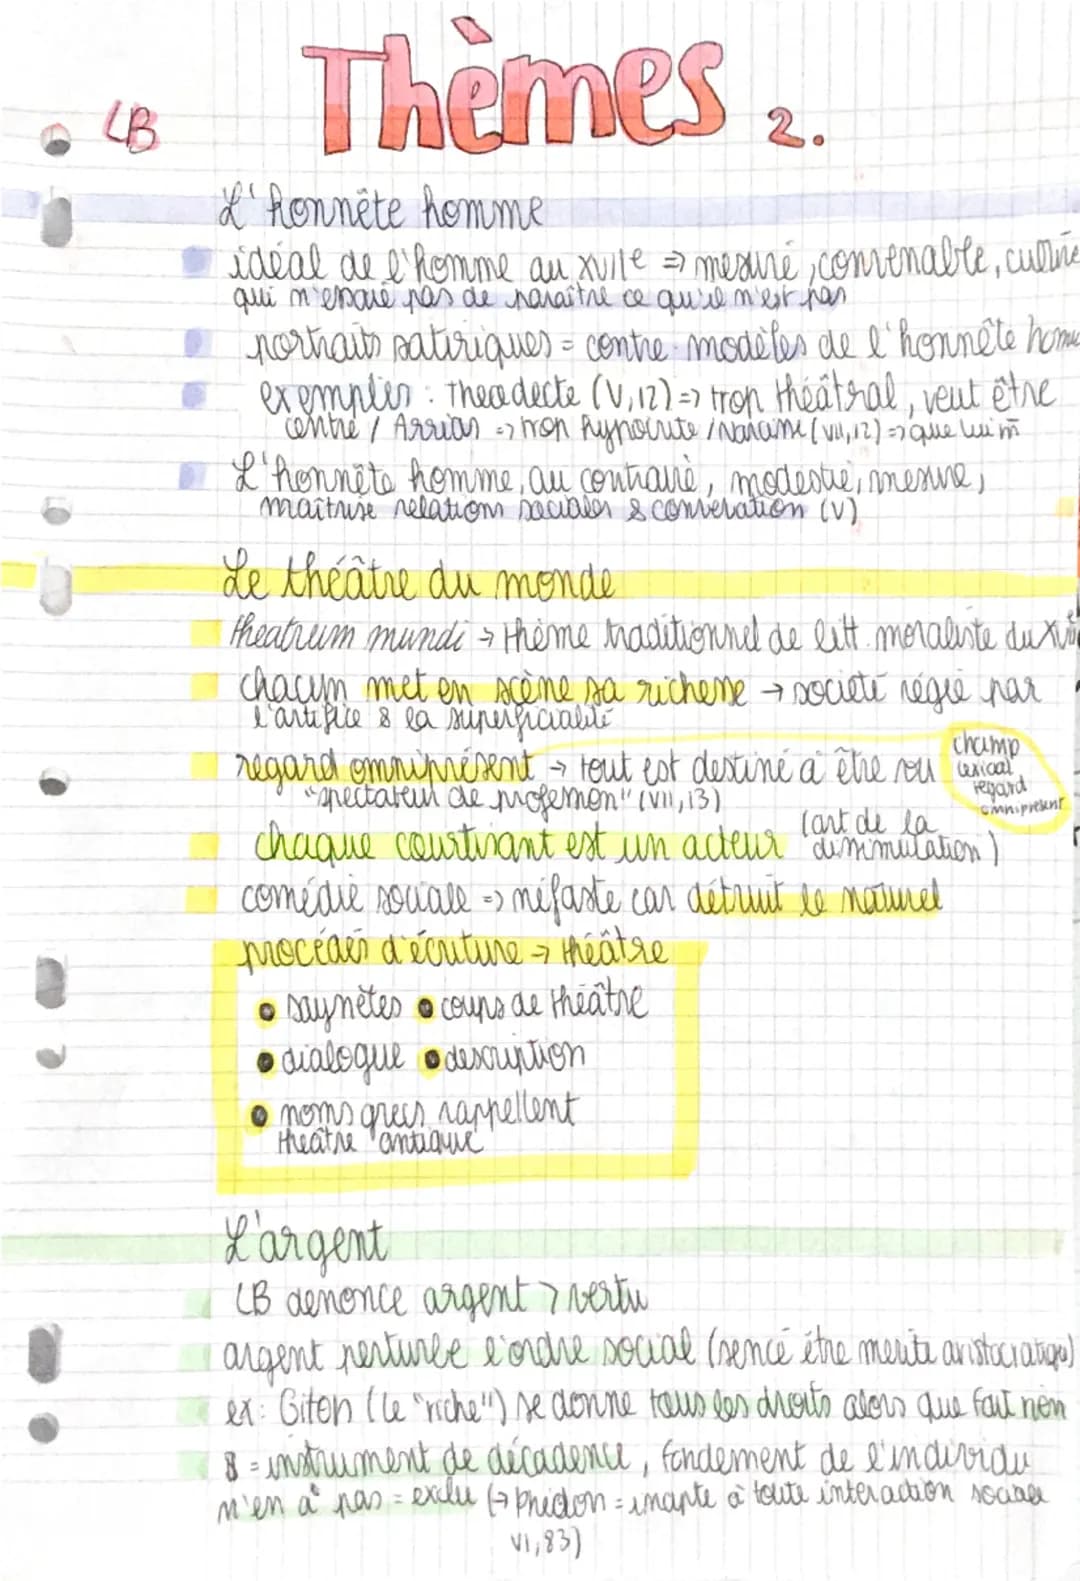 Thèmes 2.
LB
L'honnête homme
idéal de l'homme au XVIIe => mesuré, convenable, cultivé
qui n'essaie pas de paraître ce qu'il n'est pas
portraits satiriques = contre-modèles de l'honnête homme
exemples : Theodecte (V,12) => trop théâtral, veut être
centre / Arrias => trop hypocrite / Narcisse (VII,12) => que lui m̄
L'honnête homme, au contraire, modestie, mesure,
maîtrise relations sociales & conversation (V)
Le théâtre du monde
theatrum mundi → thème traditionnel de litt. moraliste du XVIIe
chacun met en scène sa richesse → société régie par
l'artifice & la superficialité
regard omniprésent → tout est destiné à être vu
"spectateur de profession" (VII,13)
champ
lexical
regard
omniprésent
chaque courtisant est un acteur (art de la
dissimulation)
comédie sociale => néfaste car détruit le naturel
procédés d'écriture → théâtre
• saynètes • coups de théâtre
• dialogue • description
• noms grecs rappellent
théâtre antique
L'argent
LB dénonce argent > vertu
argent perturbe l'ordre social (sencé être merite aristocratique)
ex: Giton (le "riche") se donne tous les droits alors que fait rien
$ = instrument de décadence, fondement de l'individu
n'en a pas = exclu (→ Phédon = inapte à toute interaction sociale
VI,83)